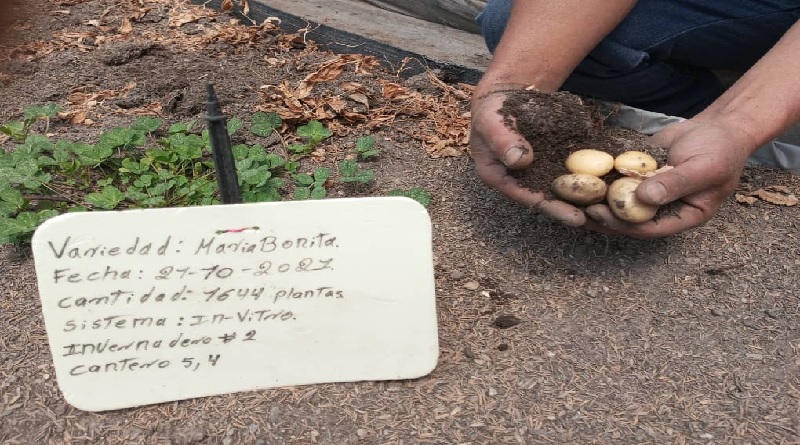 Variedad: Maria Bonita.
Fecha: 21-10-2021.
cantidad: 1644 plantas
sistema: In-Vitro.
Invernadero # 2
cantero 5, 4